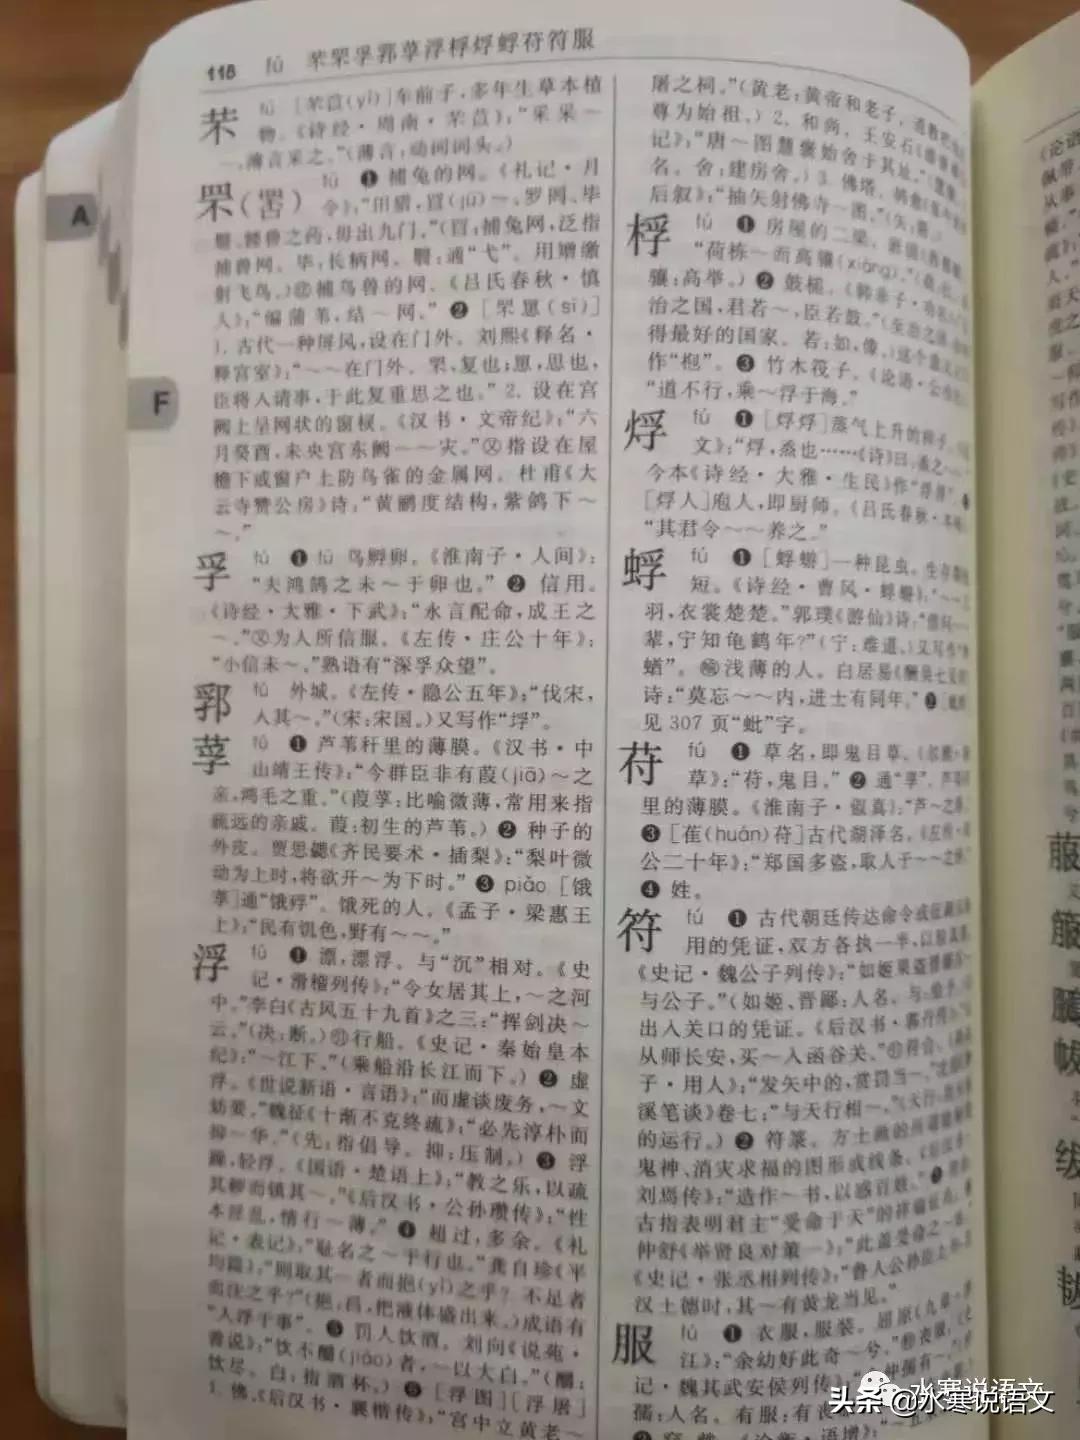 118 fú 芣罘孚郛莩浮桴烰蜉苻符服
A
F
芣 fú [芣苢(yǐ)]车前子,多年生草本植
物。《诗经·周南·芣苢》:“采采~
~,薄言采之。”(薄言:动词词头。)
罘(罦) fú ❶ 捕兔的网。《礼记·月
令》:“田猎,罝(jū)~、罗网、毕
翳、餧兽之药,毋出九门。”(罝:捕兔网,泛指
捕兽网。毕:长柄网。翳:通“弋”,用矰缴
射飞鸟。)㊣捕鸟兽的网。《吕氏春秋·慎
人》:“编蒲苇,结~网。” ❷ [罘罳(sī)]
1. 古代一种屏风,设在门外。刘熙《释名·
释宫室》:“~~在门外。罘,复也;罳,思也,
臣将入请事,于此复重思之也。” 2. 设在宫
阙上呈网状的窗棂。《汉书·文帝纪》:“六
月癸酉,未央宫东阙~~灾。”㊁指设在屋
檐下或窗户上防鸟雀的金属网。杜甫《大
云寺赞公房》诗:“黄鹂度结构,紫鸽下~
~。”
孚 fú ❶ fū 鸟孵卵。《淮南子·人间》:
“夫鸿鹄之未~于卵也。” ❷ 信用。
《诗经·大雅·下武》:“永言配命,成王之
~。”㊁为人所信服。《左传·庄公十年》:
“小信未~。”熟语有“深孚众望”。
郛 fú 外城。《左传·隐公五年》:“伐宋,
入其~。”(宋:宋国。)又写作“垺”。
莩 fú ❶ 芦苇秆里的薄膜。《汉书·中
山靖王传》:“今群臣非有葭(jiā)~之
亲,鸿毛之重。”(葭莩:比喻微薄,常用来指
疏远的亲戚。葭:初生的芦苇。) ❷ 种子的
外皮。贾思勰《齐民要术·插梨》:“梨叶微
动为上时,将欲开~为下时。” ❸ piǎo [饿
莩]通“饿殍”。饿死的人。《孟子·梁惠王
上》:“民有饥色,野有~~。”
浮 fú ❶ 漂,漂浮。与“沉”相对。《史
记·滑稽列传》:“令女居其上,~之河
中。”李白《古风五十九首》之三:“挥剑决~
云。”(决:断。)㊕行船。《史记·秦始皇本
纪》:“~江下。”(乘船沿长江而下。) ❷ 虚
浮。《世说新语·言语》:“而虚谈废务,~文
妨要。”魏征《十渐不克终疏》:“必先淳朴而
抑~华。”(先:指倡导。抑:压制。) ❸ 浮
躁,轻浮。《国语·楚语上》:“教之乐,以疏
其秽而镇其~。”《后汉书·公孙瓒传》:“性
本淫乱,情行~薄。” ❹ 超过,多余。《礼
记·表记》:“耻名之~于行也。”龚自珍《平
均篇》:“则取其~者而挹(yì)之乎?不足者
而注之乎?”(挹:舀,把液体盛出来。)成语有
“人浮于事”。 ❺ 罚人饮酒。刘向《说苑·
善说》:“饮不釂(jiào)者,~以大白。”(釂:
饮尽。白:指酒杯。) ❻ [浮图][浮屠]
1. 佛。《后汉书·襄楷传》:“宫中立黄老~
屠之祠。”(黄老:黄帝和老子,道教把
尊为始祖。) 2. 和尚。王安石
记》:“唐~图慧褒始舍于其址。”
名。舍:建房舍。) 3. 佛塔。韩愈
后叙》:“抽矢射佛寺~图。”(矢:箭。)
桴 fú ❶ 房屋的二梁。
“荷栋~而高骧(xiāng)。”
骧:高举。) ❷ 鼓槌。《韩非子·功名》:
治之国,君若~,臣若鼓。”
得最好的国家。若:如,像。)这个意义又
作“枹”。 ❸ 竹木筏子。《论语·公
“道不行,乘~浮于海。”
烰 fú ❶ [烰烰]蒸气上升的样子。
文》:“烰,烝也……《诗》曰:烝之~~。”
今本《诗经·大雅·生民》作“浮浮”。 ❷
[烰人]庖人,即厨师。《吕氏春秋·本味》:
“其君令~~养之。”
蜉 fú ❶ [蜉蝣]一种昆虫,生存
短。《诗经·曹风·蜉蝣》:“~~
羽,衣裳楚楚。”郭璞《游仙》诗:“借问~~
辈,宁知龟鹤年?”(宁:难道。)又写作
蝤”。㊕浅薄的人。白居易
诗:“莫忘~~内,进士有同年。” ❷
见 307 页“蚍”字。
苻 fú ❶ 草名,即鬼目草。《尔雅·释
草》:“苻,鬼目。” ❷ 通“莩”。芦苇
里的薄膜。《淮南子·俶真》:“芦~之厚。”
❸ [萑(huán)苻]古代湖泽名。《左传·昭
公二十年》:“郑国多盗,取人于~~之泽。”
❹ 姓。
符 fú ❶ 古代朝廷传达命令或征调兵将
用的凭证,双方各执一半,以验真
《史记·魏公子列传》:“如姬果盗晋鄙兵~
与公子。”(如姬、晋鄙:人名。与:给予。)
出入关口的凭证。《后汉书·郭丹传》:
从师长安,买~入函谷关。”㊕符合。《韩非
子·用人》:“发矢中的,赏罚当~。”沈括《梦
溪笔谈》卷七:“与天行相~。”(天行:
的运行。) ❷ 符箓。方士画的所谓能驱使
鬼神、消灾求福的图形或线条。《后汉书·
刘焉传》:“造作~书,以惑百姓。” ❸
古指表明君主“受命于天”的祥瑞征兆。董
仲舒《举贤良对策一》:“此盖受命之~也。”
《史记·张丞相列传》:“鲁人公孙臣上书言
汉土德时,其~有黄龙当见。”
服 fú ❶ 衣服,服装。屈原《九章·涉
江》:“余幼好此奇~兮。”㊕丧服。《史
记·魏其武安侯列传》:
孺:人名。有服:有丧
水寒说语文
头条 @水寒说语文